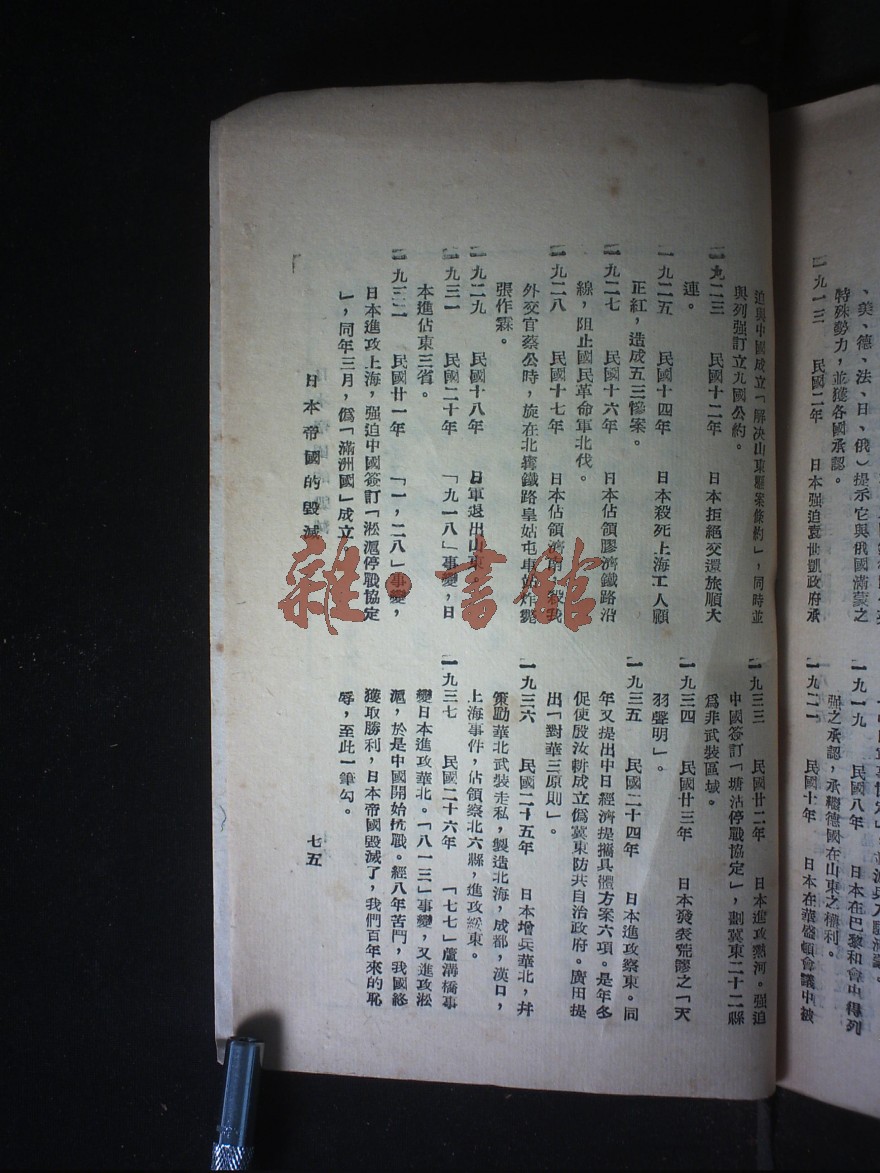 、美、德、法、日、俄）提示它與俄國滿蒙之
特殊勢力，並獲各國承認。
一九一三　民國二年　日本强迫袁世凱政府承
一九一九　民國八年　日本在巴黎和會中得列
强之承認，承繼德國在山東之權利。
一九二一　民國十年　日本在華盛頓會議中被
迫與中國成立「解決山東懸案條約」，同時並
與列强訂立九國公約。
一九二三　民國十二年　日本拒絕交還旅順大
連。
一九二五　民國十四年　日本殺死上海工人顧
正紅，造成五三慘案。
一九二七　民國十六年　日本佔領膠濟鐵路沿
線，阻止國民革命軍北伐。
一九二八　民國十七年　日本佔領濟南，殺我
外交官蔡公時，旋在北寗鐵路皇姑屯車站炸斃
張作霖。
一九二九　民國十八年　日軍退出山東
一九三一　民國二十年　「九一八」事變，日
本進佔東三省。
一九三二　民國廿一年　「一，二八」事變，
日本進攻上海，强迫中國簽訂「淞滬停戰協定
」，同年三月，僞「滿洲國」成立
一九三三　民國廿二年　日本進攻熱河。强迫
中國簽訂「塘沽停戰協定」，劃冀東二十二縣
爲非武裝區域。
一九三四　民國廿三年　日本發表荒謬之「天
羽聲明」。
一九三五　民國二十四年　日本進攻察東。同
年又提出中日經濟提攜具體方案六項。是年冬
促使殷汝耕成立僞冀東防共自治政府。廣田提
出「對華三原則」。
一九三六　民國二十五年　日本增兵華北，幷
策動華北武裝走私，製造北海，成都，漢口，
上海事件，佔領察北六縣，進攻綏東。
一九三七　民國二十六年　「七七」蘆溝橋事
變日本進攻華北。「八一三」事變，又進攻淞
滬，於是中國開始抗戰。經八年苦鬥，我國終
獲取勝利，日本帝國毀滅了，我們百年來的恥
辱，至此一筆勾。
日本帝國的毀滅
七五
雜·書館